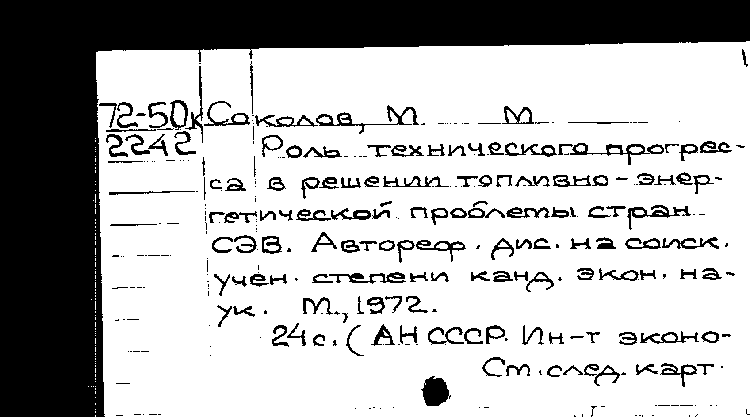 72-50к Соколов, М М
2242 Роль технического прогрес-
са в решении топливно-энер-
гетической проблемы стран
СЭВ. Автореф. дис. на соиск.
учен. степени канд. экон. на-
ук. М., 1972.
24 с. ( АН СССР. Ин-т эконо-
См. след. карт.